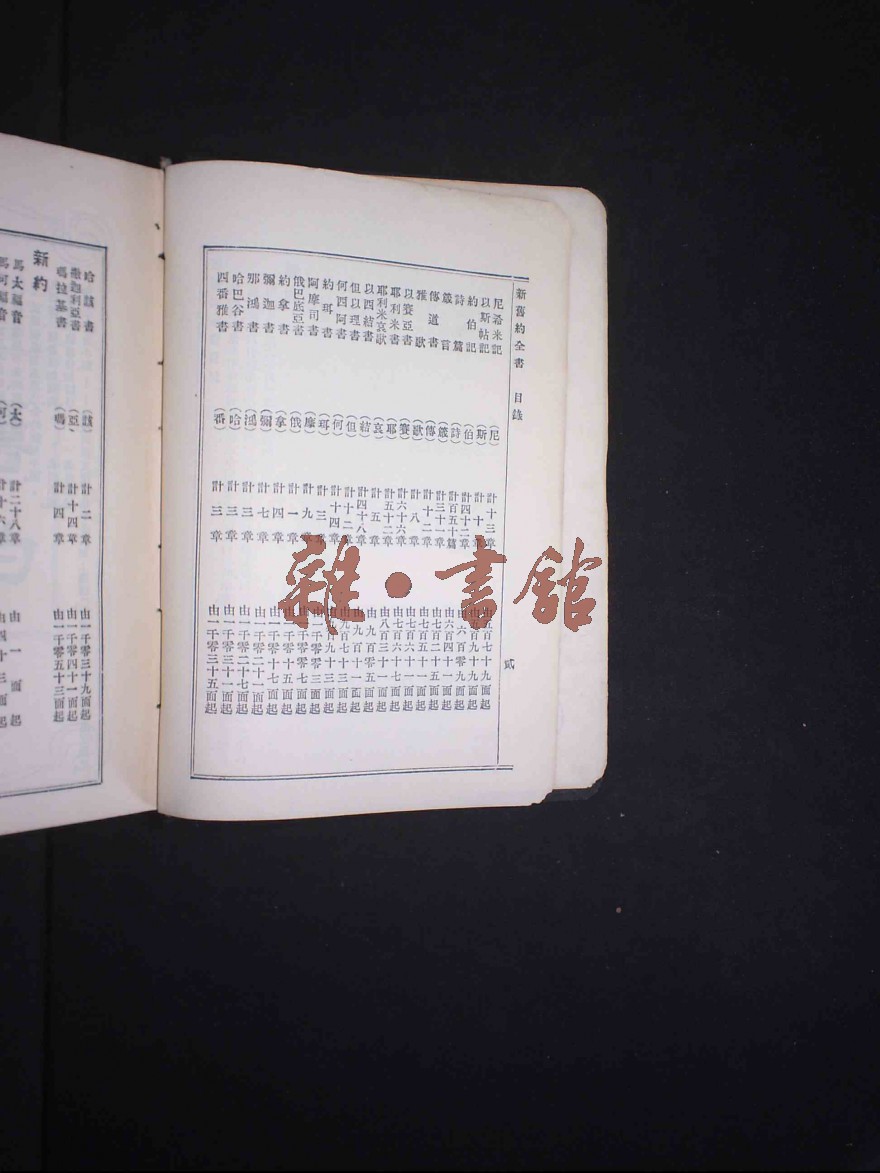 新舊約全書 目錄 貳
尼希米記 (尼) 計十三章 由五百七十九面起
以斯帖記 (斯) 計十章 由五百九十九面起
約伯記 (伯) 計四十二章 由六百零九面起
詩篇 (詩) 計百五十篇 由六百四十一面起
箴言 (箴) 計三十一章 由七百二十五面起
傳道書 (傳) 計十二章 由七百五十一面起
雅歌 (歌) 計八章 由七百六十一面起
以賽亞書 (賽) 計六十六章 由七百六十七面起
耶利米書 (耶) 計五十二章 由八百三十一面起
耶利米哀歌 (哀) 計五章 由九百零五面起
以西結書 (結) 計四十八章 由九百十一面起
但以理書 (但) 計十二章 由九百七十一面起
何西阿書 (何) 計十四章 由九百九十三面起
約珥書 (珥) 計三章 由一千零零三面起
阿摩司書 (摩) 計九章 由一千零零七面起
俄巴底亞書 (俄) 計一章 由一千零十五面起
約拿書 (拿) 計四章 由一千零十七面起
彌迦書 (彌) 計七章 由一千零二十一面起
那鴻書 (鴻) 計三章 由一千零二十七面起
哈巴谷書 (哈) 計三章 由一千零三十一面起
西番雅書 (番) 計三章 由一千零三十五面起
哈該書 (該) 計二章 由一千零三十九面起
撒迦利亞書 (亞) 計十四章 由一千零四十一面起
瑪拉基書 (瑪) 計四章 由一千零五十三面起
新約
馬太福音 (太) 計二十八章 由一面起
馬可福音 (可) 計十六章 由四十三面起
雜·書館